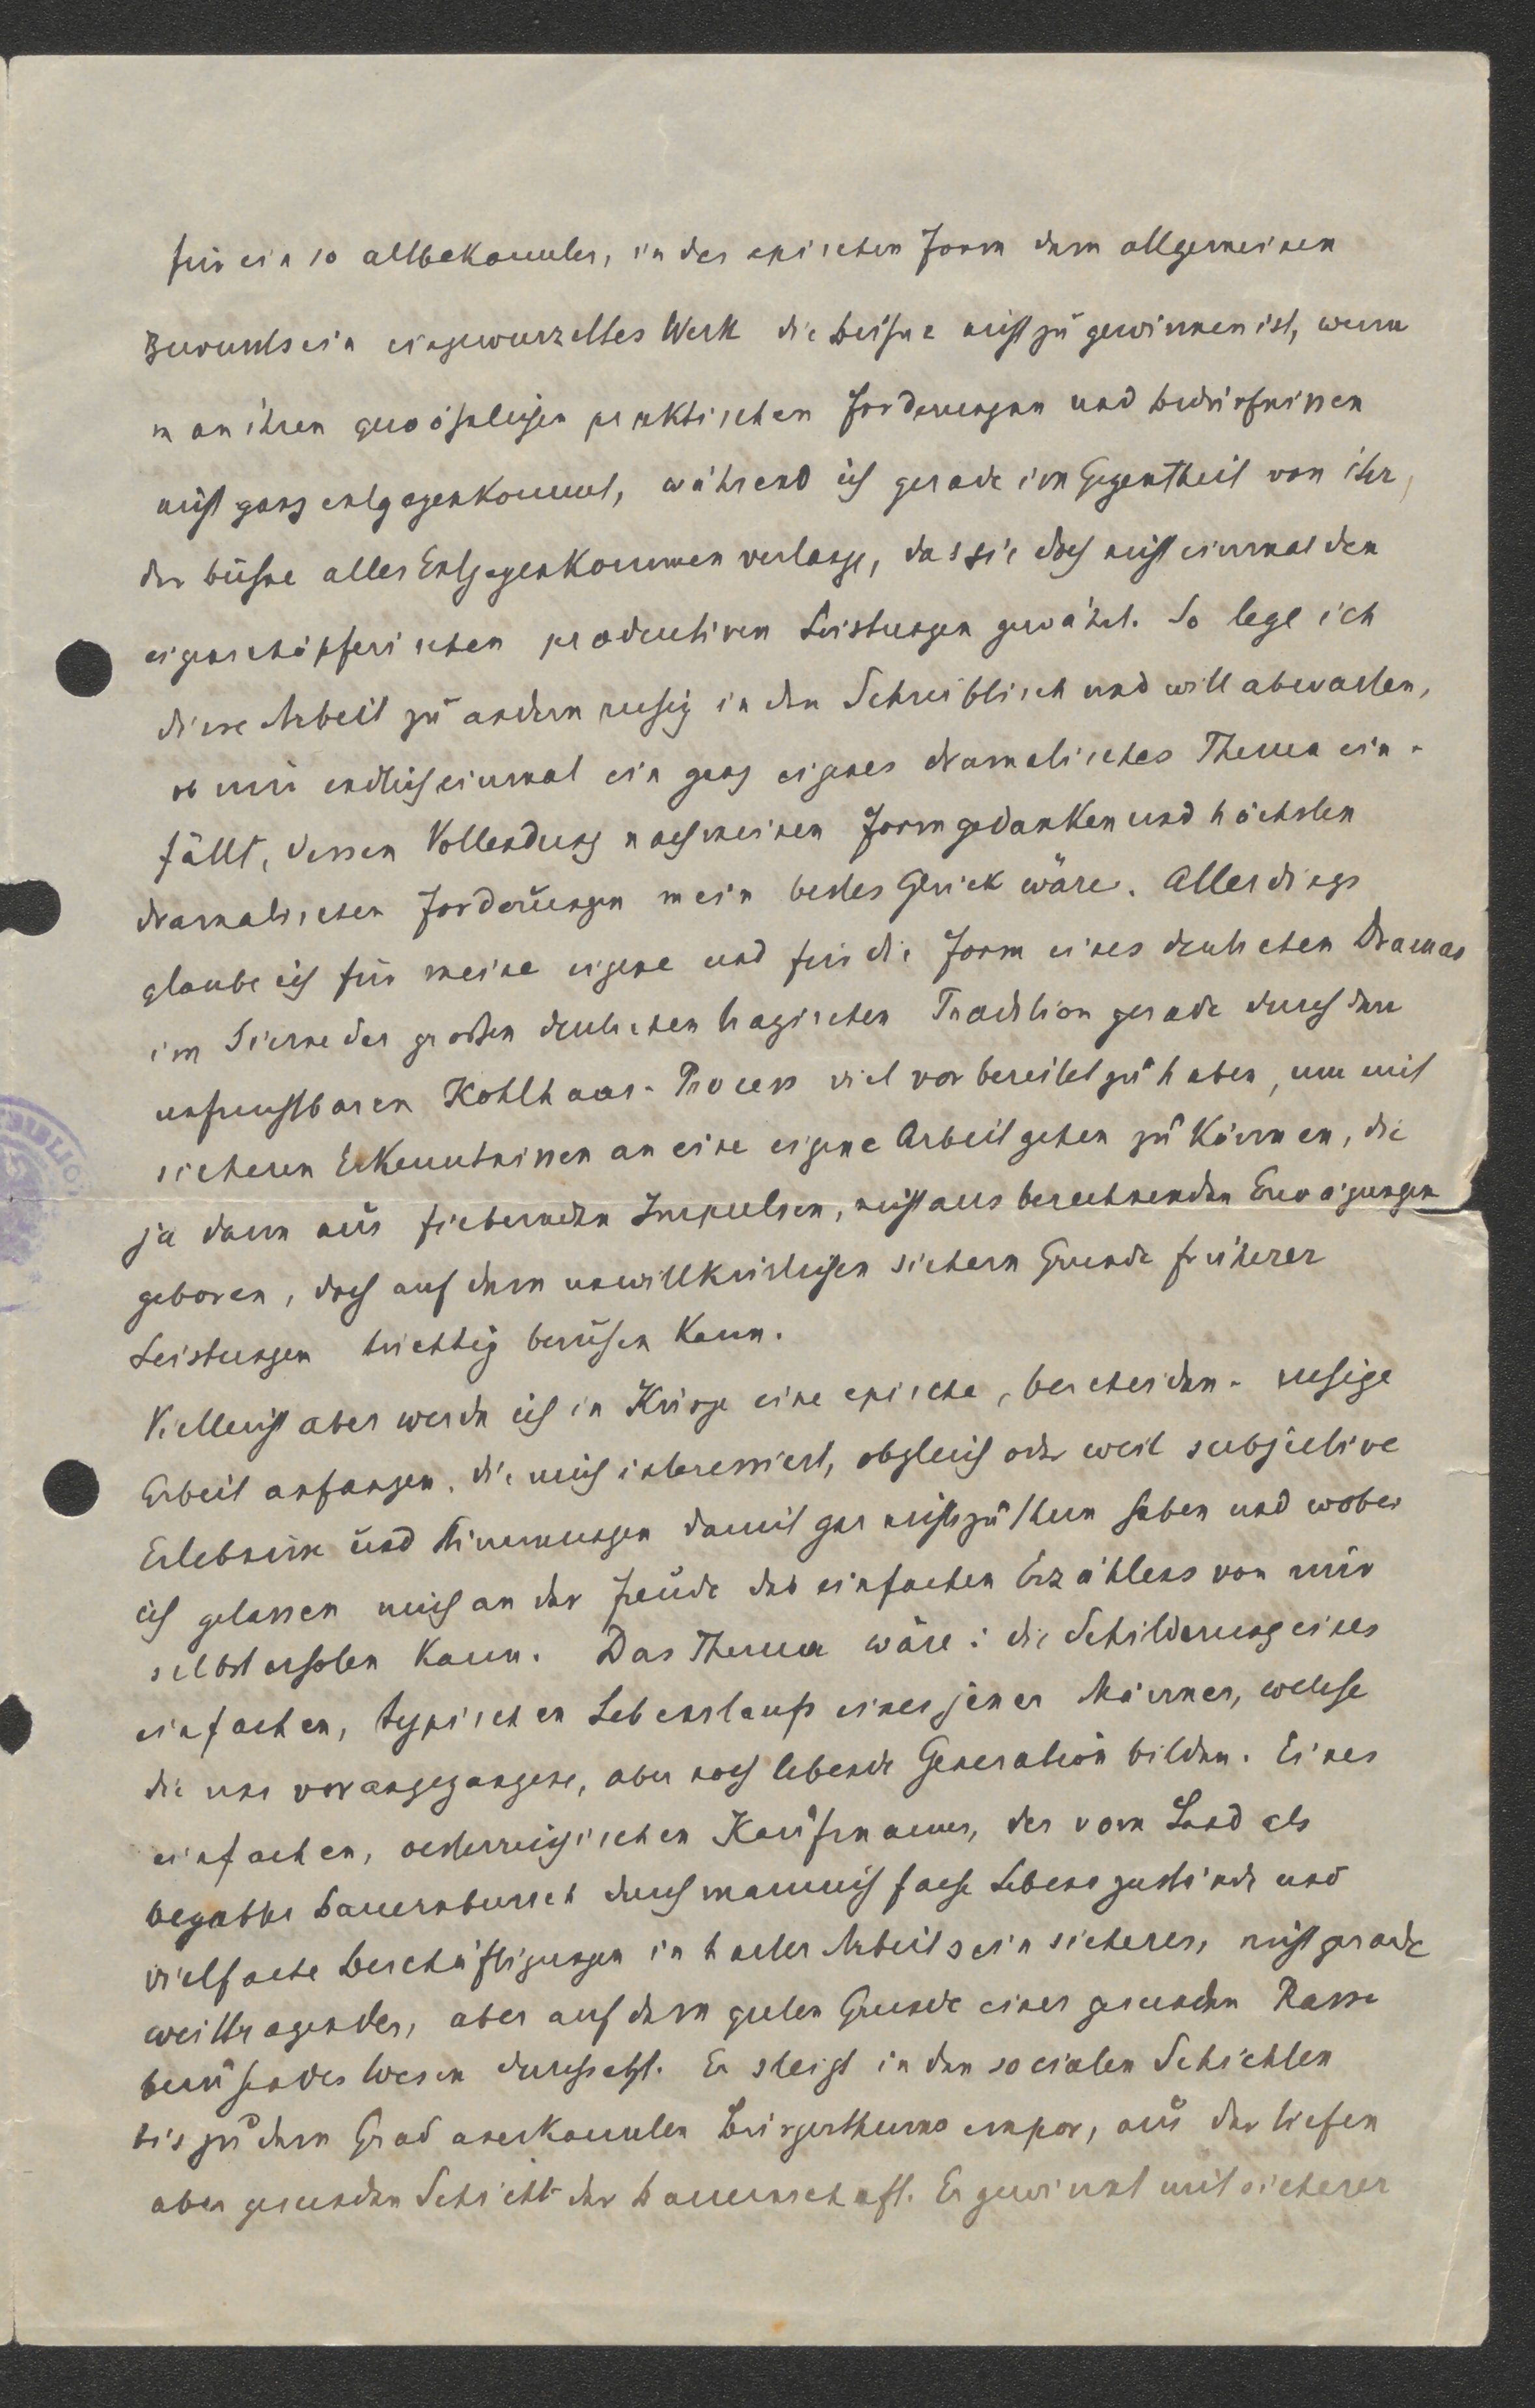 für ein so altbekanntes, in der epischen Form dem allgemeinen
Bewusstsein eingewurzeltes Werk die Bühne nicht zu gewinnen ist, wenn
man ihren gewöhnlichen praktischen Forderungen und Bedürfnissen
nicht ganz entgegenkommt, während ich gerade im Gegentheil von ihr,
der Bühne alles Entgegenkommen verlange, das sie doch nicht einmal den
eigenschöpferischen productiven Leistungen gewährt. So lege ich
diese Arbeit zu andern ruhig in den Schreibtisch und will abwarten,
ob mir endlich einmal ein ganz eigenes dramatisches Thema ein-
fällt, dessen Vollendung nach meinen Formgedanken und höchsten
dramatischen Forderungen mein bestes Glück wäre. Allerdings
glaube ich für meine eigene und für die Form eines deutschen Dramas
im Sinne der großen deutschen tragischen Tradition gerade durch den
unfruchtbaren Kohlhaas-Process viel vorbereitet zu haben, um mit
sicheren Erkenntnissen an eine eigene Arbeit gehen zu können, die
ja dann aus fiebernden Impulsen, nicht aus berechnenden Erwägungen
geboren, doch auf dem unwillkürlichen sichern Grunde früherer
Leistungen trächtig beruhen kann.
Vielleicht aber werde ich in Kürze eine epische, bescheiden-ruhige
Arbeit anfangen, die mich interessiert, obgleich oder weil subjective
Erlebnisse und Stimmungen damit gar nichts zu thun haben und wobei
ich gelassen mich an der Freude des einfachen Erzählens von mir
selbst erholen kann. Das Thema wäre: die Schilderung eines
einfachen, typischen Lebenslaufs eines jener Männer, welche
die uns vorangegangene, aber noch lebende Generation bilden. Eines
einfachen, oesterreichischen Kaufmanns, der vom Land als
begabter Bauernbursch durch mannichfache Lebenszustände und
vielfache Beschäftigungen in harter Arbeit sein sicheres, nicht gerade
weittragendes, aber auf dem guten Grunde einer gesunden Rasse
beruhendes Wesen durchsetzt. Er steigt in den socialen Schichten
bis zu dem Grad anerkannten Bürgerthums empor, aus der tiefen
aber gesunden Schicht der Bauernschaft. Er gewinnt mit sicherer